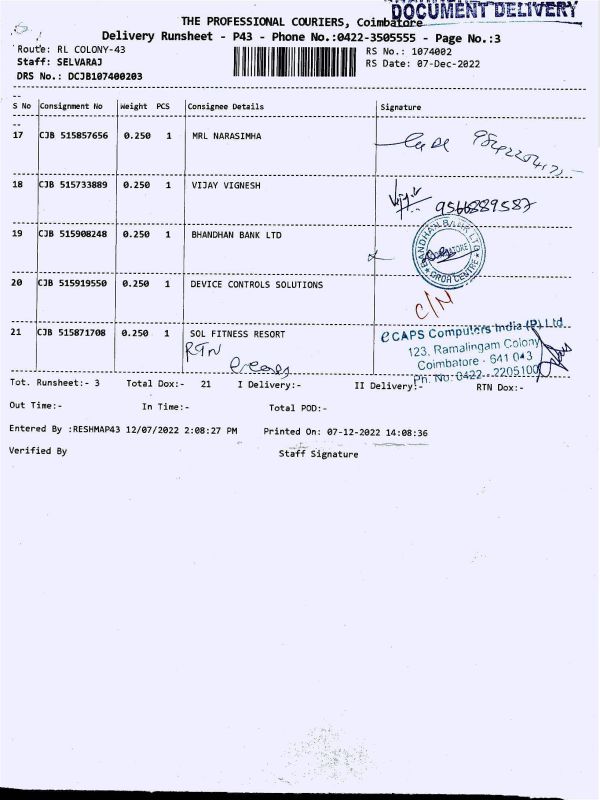 DOCUMENT DELIVERY
THE PROFESSIONAL COURIERS, Coimbatore
Delivery Runsheet - P43 - Phone No.:0422-3505555 - Page No.:3
Route: RL COLONY-43
RS No.: 1074002
Staff: SELVARAJ
RS Date: 07-Dec-2022
DRS No.: DCJB107400203
S No Consignment No Weight PCS Consignee Details Signature
17 CJB 515857656 0.250 1 MRL NARASIMHA
18 CJB 515733889 0.250 1 VIJAY VIGNESH
9566889587
19 CJB 515908248 0.250 1 BHANDHAN BANK LTD
BANDHAN BANK LTD
COIMBATORE
20 CJB 515919550 0.250 1 DEVICE CONTROLS SOLUTIONS
C/N
21 CJB 515871708 0.250 1 SOL FITNESS RESORT
RTN
eCAPS Computers India (P) Ltd.
123, Ramalingam Colony
Coimbatore - 641 043
Ph: No: 0422 - 2205100
Tot. Runsheet:- 3 Total Dox:- 21 I Delivery:- II Delivery:- RTN Dox:-
Out Time:- In Time:- Total POD:-
Entered By :RESHMAP43 12/07/2022 2:08:27 PM Printed On: 07-12-2022 14:08:36
Verified By Staff Signature